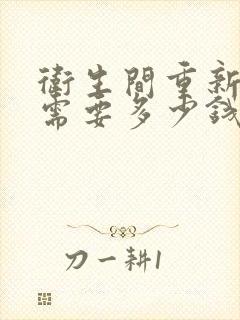 衛生間重新
需要多少錢
刀一耕1